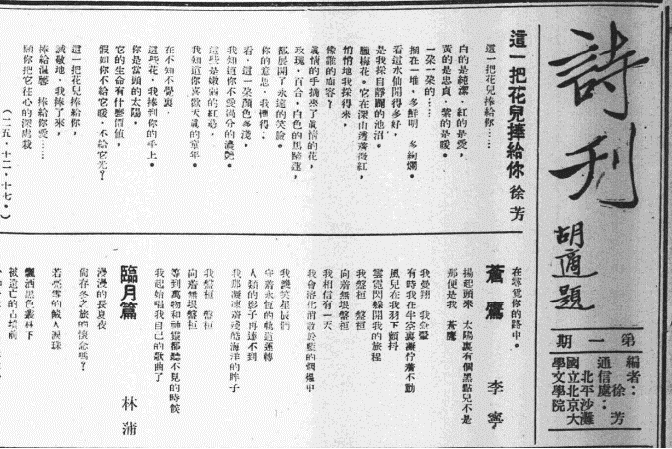 詩刊
胡適題
第一期
編者：徐芳
通信處：
北平沙灘
國立北京大
學文學院
這一把花兒捧給你　徐芳
這一把花兒捧給你……
白的是純潔，紅的是愛，
黃的是忠貞，紫的是暖。
一朵一朵的……
捆在一堆，多鮮明，多絢爛。
看這水仙開得多好，
是我採自靜闢的池沼。
臘梅花。它在深山透着微紅，
悄悄地我採得來，
像誰的面容？
眞情的手摘來了眞情的花，
玫瑰，百合，白色的馬蹄蓮，
都展開了永遠的笑臉。
你的意思，我懂得，
看，這一朶顏色多淺，
我知道你不愛過分的濃艷。
這些是嫩弱的紅惹，
我知道你喜歡天眞的童年。
在不知不覺裏，
這些花，我捧到你的手上。
你是當頭的太陽，
它的生命有什麼價值，
假如你不給它暖，不給它光？
這一把花兒捧給你，
誠敬地，我捧了來，
捧給溫馨，捧給你愛……
願你把它往心的深處栽
（二五，十二，十七。）
在尋覓你的路中。
蒼鷹　李寧
揚起頭來　太陽裏有個黑點兒不是
那便是我　蒼鷹
我翱翔　我翱翔
有時我在半空裏凝佇着不動
風兒在我羽下顫抖
雲霓閃躱開我的旅程
向着無垠盤桓
我盤桓　盤桓
我相信有一天
我會溶化消散於藍的個爐中
我讚美星辰們
守着永恆的軌道運轉
人類的影子再達不到
我那凝凍着淺酷海洋的眸子
我盤桓　盤桓
向着無垠盤桓
等到萬物和神靈都聽不見的時候
我起始唱我自己的歌曲了
臨月篇　林蒲
漫漫的長夏夜
倘春冬之旅的懷念嗎？
若亮雪的鹹人淚珠
飄洒黑色叢林下
被遺亡的古墳前